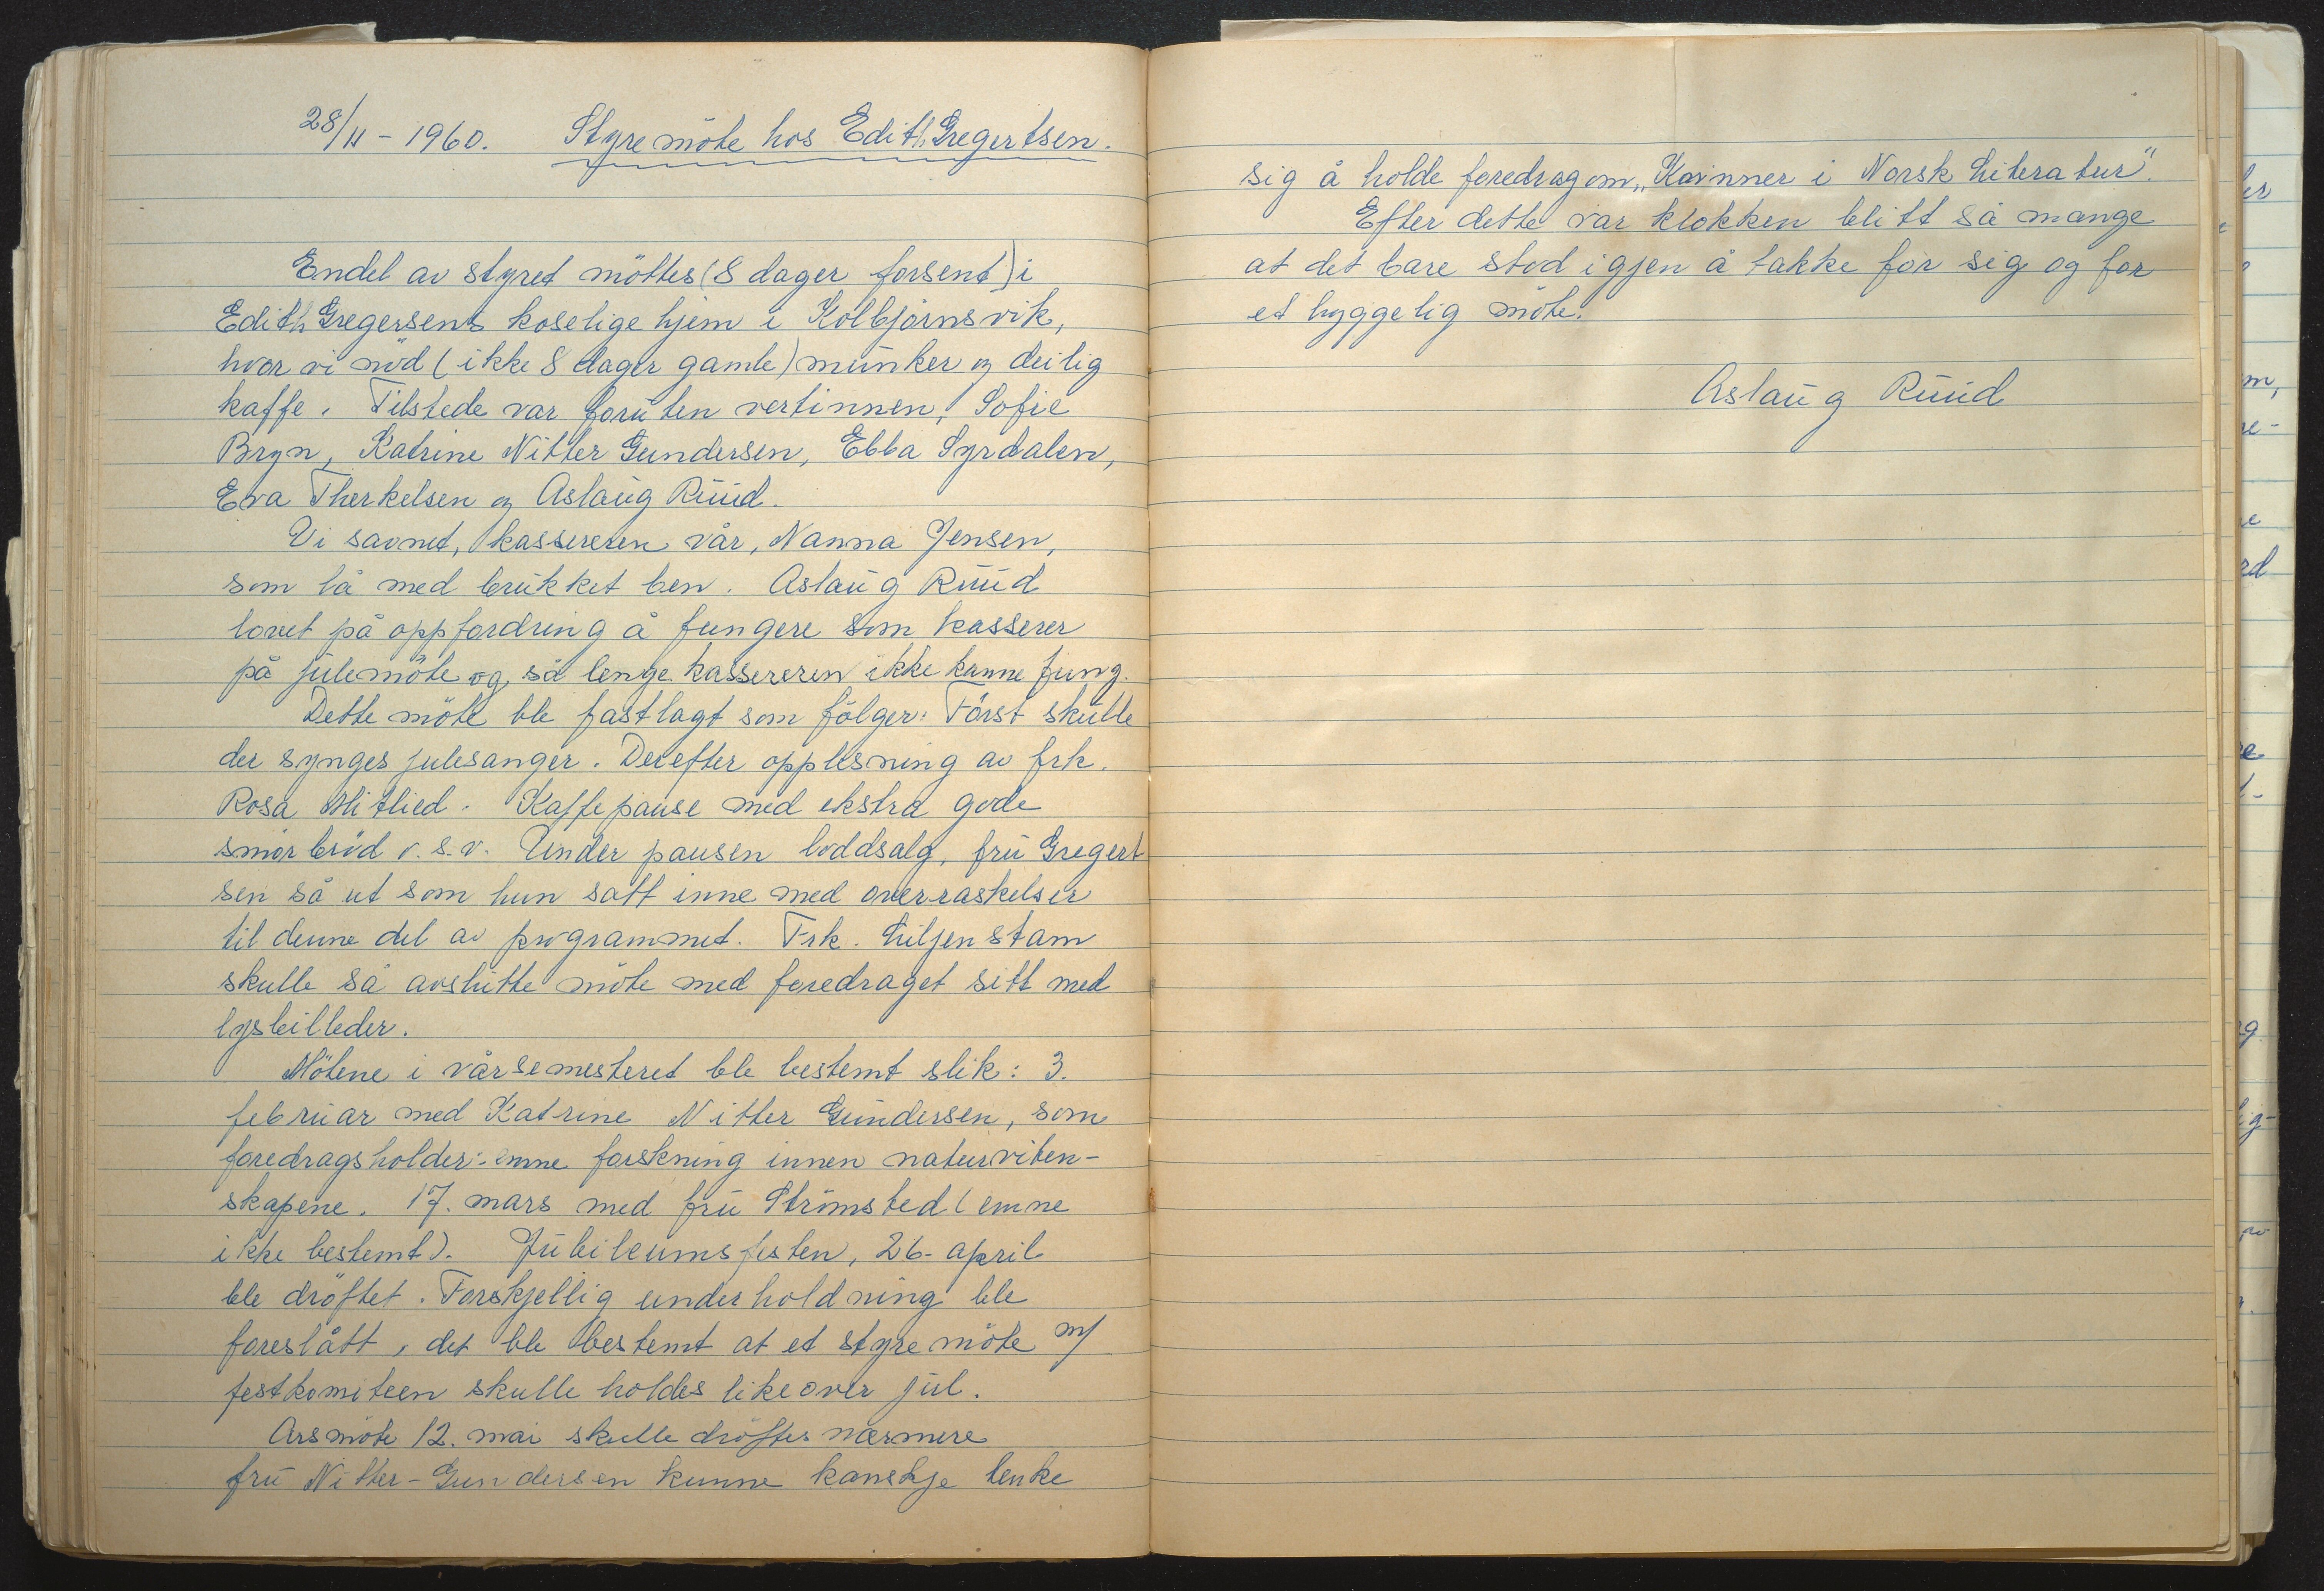 28/11-1960. Styremöte hos Edith Gregertsen.
Endel av styret möttes (8 dager forsent) i
Edith Gregersens koselige hjem i Kolbjörnsvik,
hvor vi nöd (ikke 8 dager gamle) munker og deilig
kaffe. Tilstede var foruten vertinnen, Sofie
Bryn, Katrine Nitter Gundersen, Ebba Syrdalen,
Eva Therkelsen og Aslaug Ruud.
Vi savnet, kassereren vår, Nanna Jensen,
som lå med brukket ben. Aslaug Ruud
lovet på oppfordring å fungere som kasserer
på julemöte og så lenge kassereren ikke kunne fung.
Dette möte ble fastlagt som fölger: Först skulle
der synges julesanger. Derefter opplesning av frk.
Rosa Mitlied. Kaffepause med ekstra gode
smörbröd o.s.v. Under pausen loddsalg, fru Gregert
sen så ut som hun satt inne med overraskelser
til denne del av programmet. Frk. Liljenstam
skulle så avslutte möte med foredraget sitt med
lysbilleder.
Mötene i vårsemesteret ble bestemt slik: 3.
februar med Katrine Nitter Gundersen, som
foredragsholder:- emne forskning innen naturviten-
skapene. 17. mars med fru Strömsted (emne
ikke bestemt). Jubileumsfesten, 26. april
ble dröftet. Forskjellig underholdning ble
foreslått, det ble bestemt at et styremöte m/
festkomiteen skulle holdes likeover jul.
Arsmöte 12. mai skulle dröftes nærmere
fru Nitter-Gundersen kunne kanskje tenke
sig å holde foredrag om „Kvinner i Norsk Literatur".
Efter dette var klokken blitt så mange
at det bare stod igjen å takke for sig og for
et hyggelig möte.
Aslaug Ruud